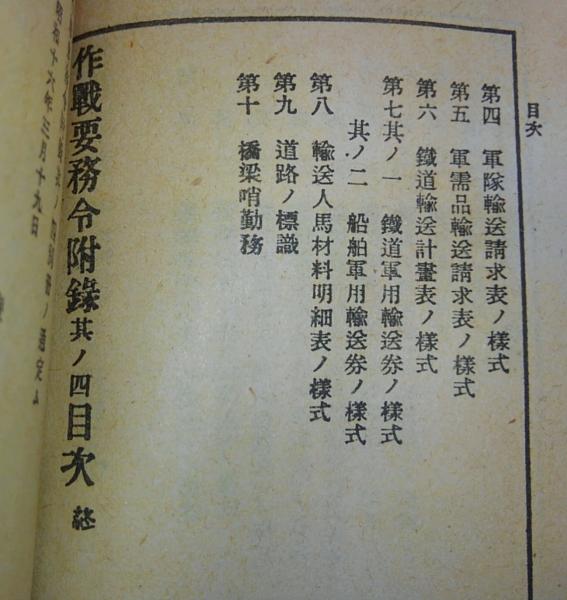 目次
第四 軍隊輸送請求表ノ樣式
第五 軍需品輸送請求表ノ樣式
第六 鐵道輸送計畫表ノ樣式
第七其ノ一 鐵道軍用輸送券ノ樣式
其ノ二 船舶軍用輸送券ノ樣式
第八 輸送人馬材料明細表ノ樣式
第九 道路ノ標識
第十 橋梁哨勤務
作戰要務令附錄其ノ四目次 終
昭和十六年三月十九日